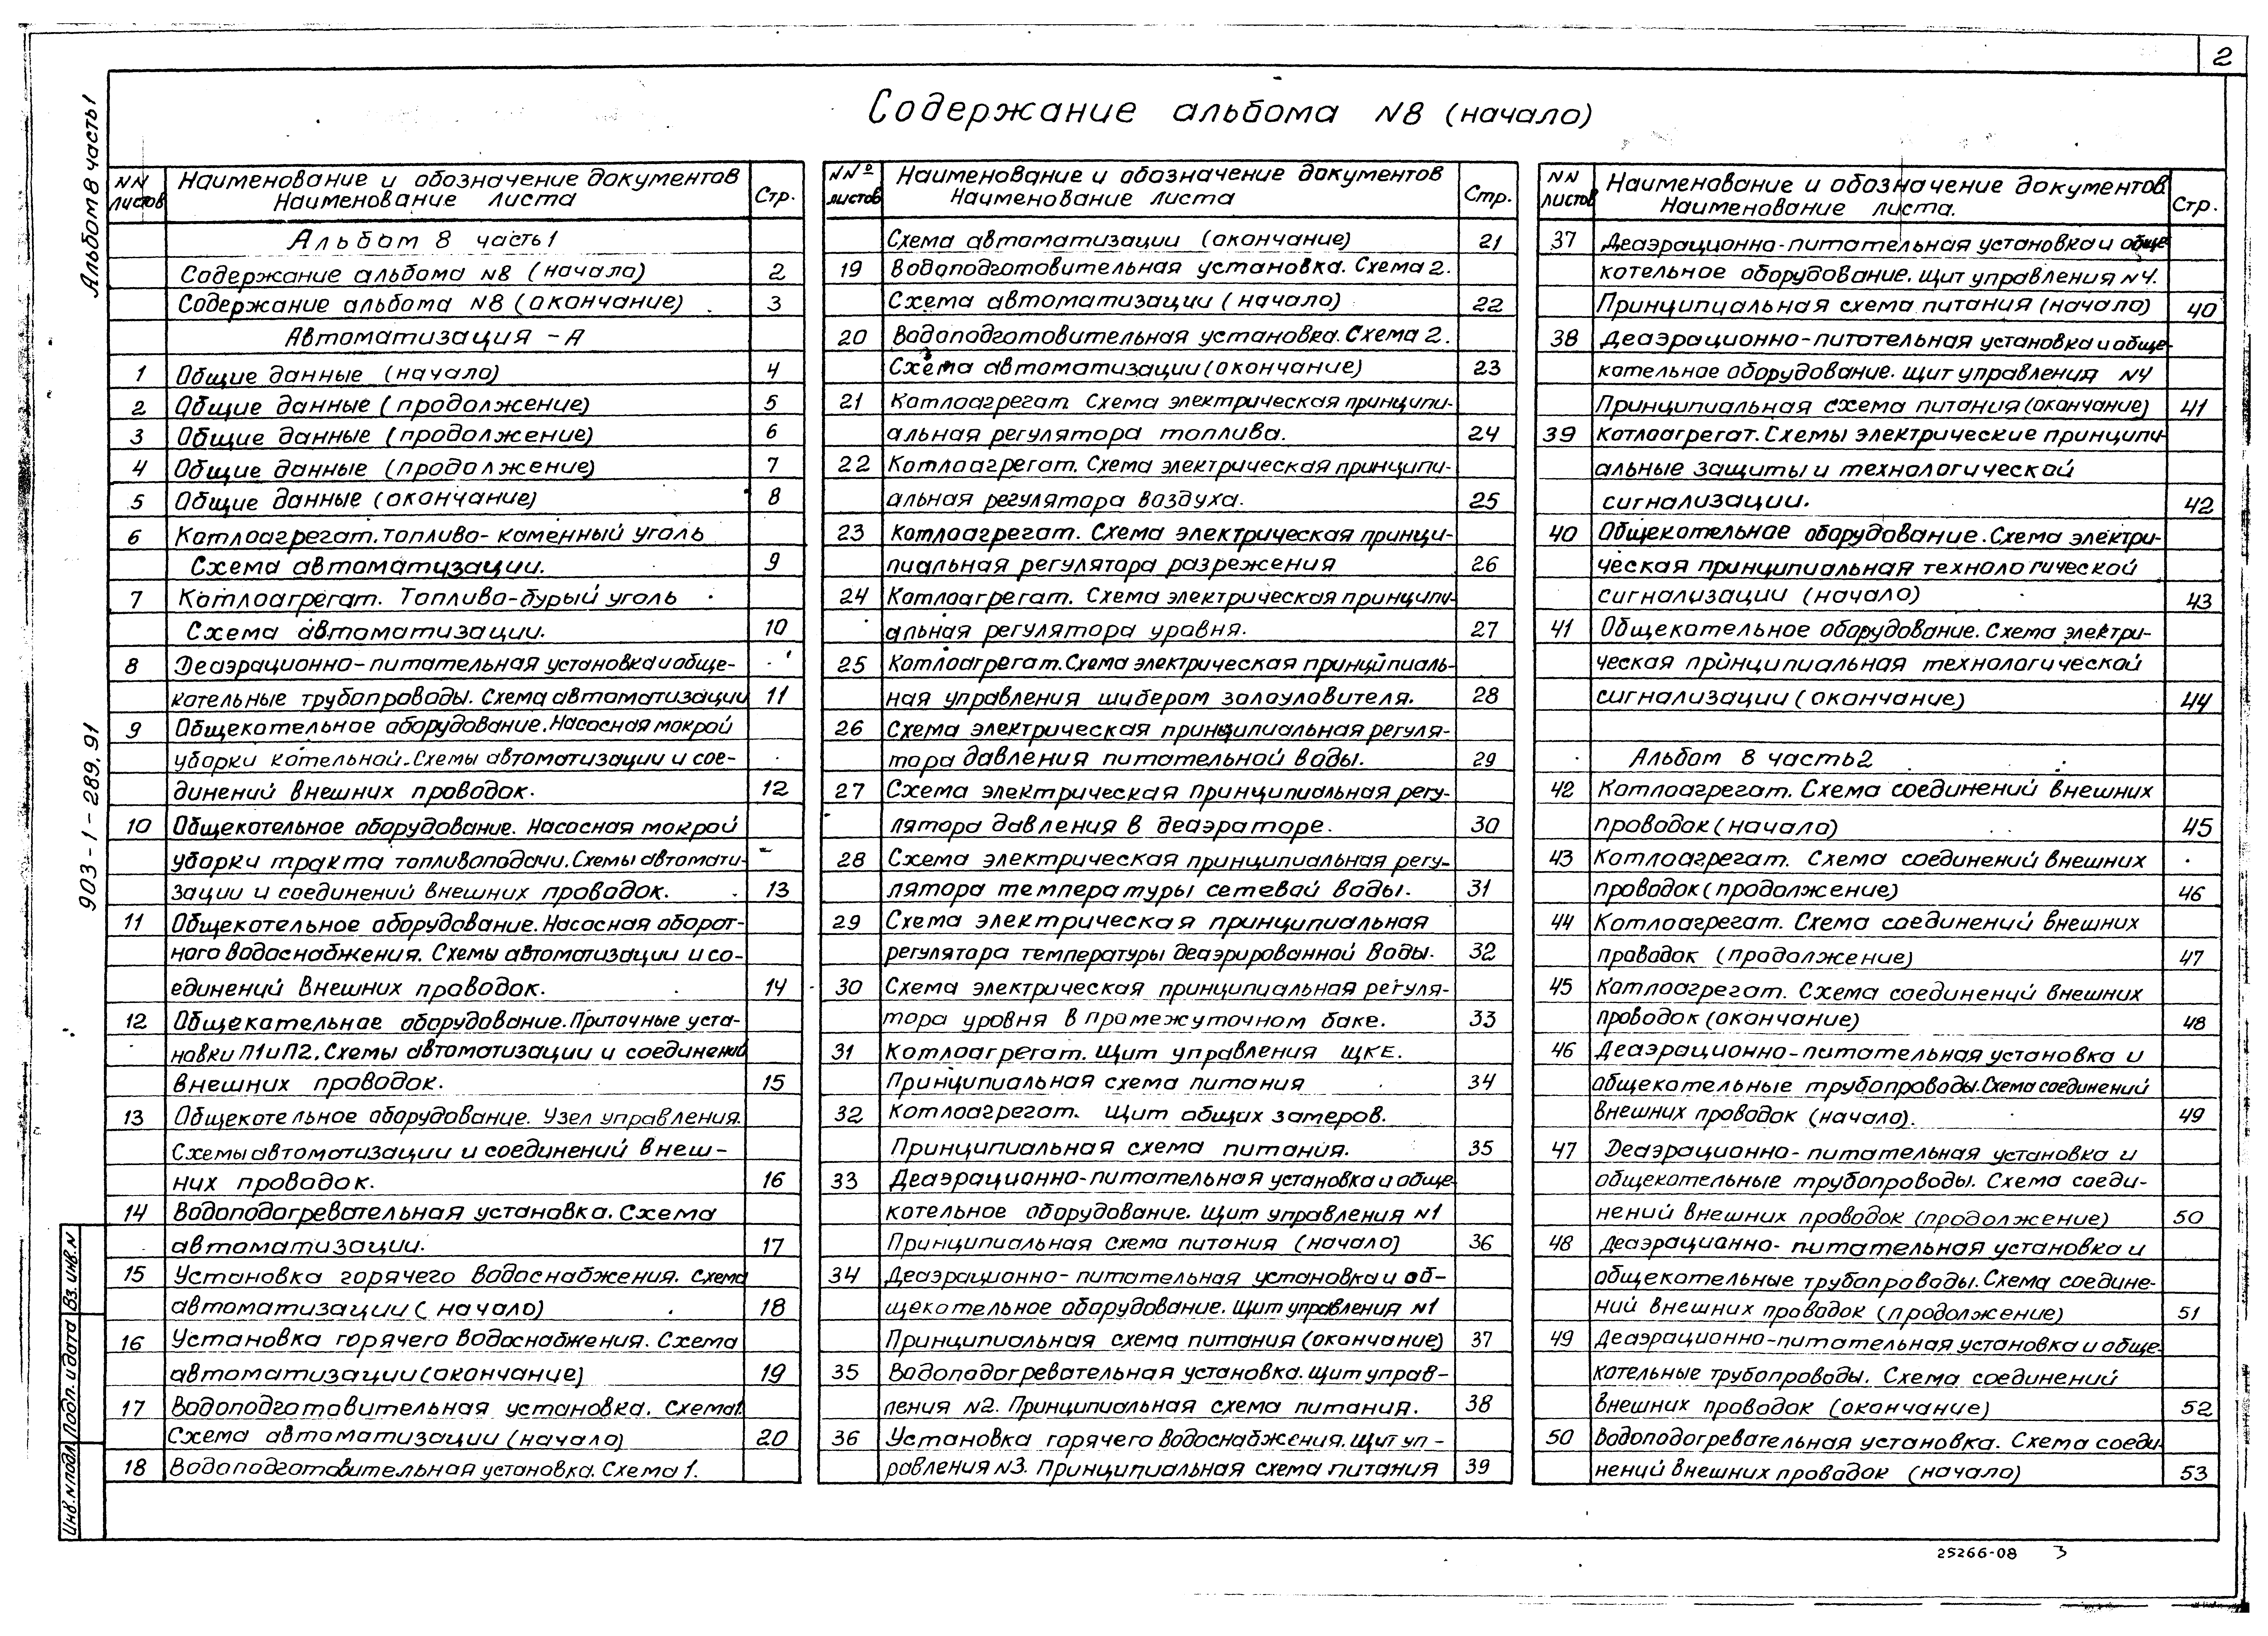 2
Альбом 8 часть 1
903-1-289.91
Содержание альбома N8 (начало)
NN листов
Наименование и обозначение документов
Наименование листа
Стр.
Альбом 8 часть 1
Содержание альбома N8 (начало) 2
Содержание альбома N8 (окончание) 3
Автоматизация - А
1 Общие данные (начало) 4
2 Общие данные (продолжение) 5
3 Общие данные (продолжение) 6
4 Общие данные (продолжение) 7
5 Общие данные (окончание) 8
6 Котлоагрегат. Топливо-каменный уголь
Схема автоматизации. 9
7 Котлоагрегат. Топливо-бурый уголь
Схема автоматизации. 10
8 Деаэрационно-питательная установка и обще-
котельные трубопроводы. Схема автоматизации 11
9 Общекотельное оборудование. Насосная мокрой
уборки котельной. Схемы автоматизации и сое-
динений внешних проводок. 12
10 Общекотельное оборудование. Насосная мокрой
уборки тракта топливоподачи. Схемы автомати-
зации и соединений внешних проводок. 13
11 Общекотельное оборудование. Насосная оборот-
ного водоснабжения. Схемы автоматизации и со-
единений внешних проводок. 14
12 Общекотельное оборудование. Приточные уста-
новки П1 и П2. Схемы автоматизации и соединений
внешних проводок. 15
13 Общекотельное оборудование. Узел управления.
Схемы автоматизации и соединений внеш-
них проводок. 16
14 Водоподогревательная установка. Схема
автоматизации. 17
15 Установка горячего водоснабжения. Схема
автоматизации (начало) 18
16 Установка горячего водоснабжения. Схема
автоматизации (окончание) 19
17 Водоподготовительная установка. Схема 1.
Схема автоматизации (начало) 20
18 Водоподготовительная установка. Схема 1.
NNº листов
Наименование и обозначение документов
Наименование листа
Стр.
Схема автоматизации (окончание) 21
19 Водоподготовительная установка. Схема 2.
Схема автоматизации (начало) 22
20 Водоподготовительная установка. Схема 2.
Схема автоматизации (окончание) 23
21 Котлоагрегат Схема электрическая принципи-
альная регулятора топлива. 24
22 Котлоагрегат. Схема электрическая принципи-
альная регулятора воздуха. 25
23 Котлоагрегат. Схема электрическая принци-
пиальная регулятора разрежения 26
24 Котлоагрегат. Схема электрическая принципи-
альная регулятора уровня. 27
25 Котлоагрегат. Схема электрическая принципиаль-
ная управления шибером золоуловителя. 28
26 Схема электрическая принципиальная регуля-
тора давления питательной воды. 29
27 Схема электрическая принципиальная регу-
лятора давления в деаэраторе. 30
28 Схема электрическая принципиальная регу-
лятора температуры сетевой воды. 31
29 Схема электрическая принципиальная
регулятора температуры деаэрированной воды. 32
30 Схема электрическая принципиальная регуля-
тора уровня в промежуточном баке. 33
31 Котлоагрегат. Щит управления ЩКЕ.
Принципиальная схема питания 34
32 Котлоагрегат. Щит общих замеров.
Принципиальная схема питания. 35
33 Деаэрационно-питательная установка и обще-
котельное оборудование. Щит управления N1
Принципиальная схема питания (начало) 36
34 Деаэрационно-питательная установка и об-
щекотельное оборудование. Щит управления N1
Принципиальная схема питания (окончание) 37
35 Водоподогревательная установка. Щит управ-
ления N2. Принципиальная схема питания. 38
36 Установка горячего водоснабжения. Щит уп-
равления N3. Принципиальная схема питания 39
NN листов
Наименование и обозначение документов.
Наименование листа.
Стр.
37 Деаэрационно-питательная установка и обще
котельное оборудование. Щит управления N4.
Принципиальная схема питания (начало) 40
38 Деаэрационно-питательная установка и обще-
котельное оборудование. Щит управления N4
Принципиальная схема питания (окончание) 41
39 Котлоагрегат. Схемы электрические принципи-
альные защиты и технологической
сигнализации. 42
40 Общекотельное оборудование. Схема электри-
ческая принципиальная технологической
сигнализации (начало) 43
41 Общекотельное оборудование. Схема электри-
ческая принципиальная технологической
сигнализации (окончание) 44
Альбом 8 часть 2
42 Котлоагрегат. Схема соединений внешних
проводок (начало) 45
43 Котлоагрегат. Схема соединений внешних
проводок (продолжение) 46
44 Котлоагрегат. Схема соединений внешних
проводок (продолжение) 47
45 Котлоагрегат. Схема соединений внешних
проводок (окончание) 48
46 Деаэрационно-питательная установка и
общекотельные трубопроводы. Схема соединений
внешних проводок (начало). 49
47 Деаэрационно-питательная установка и
общекотельные трубопроводы. Схема соеди-
нений внешних проводок (продолжение) 50
48 Деаэрационно-питательная установка и
общекотельные трубопроводы. Схема соедине-
ний внешних проводок (продолжение) 51
49 Деаэрационно-питательная установка и обще-
котельные трубопроводы. Схема соединений
внешних проводок (окончание) 52
50 Водоподогревательная установка. Схема соеди-
нений внешних проводок (начало) 53
Инв. N подл. Подп. и дата Вз. инв. N
25266-08 3